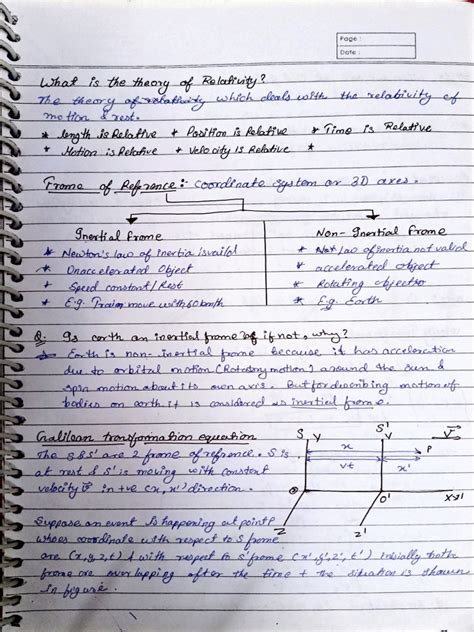 Page :
Date :
What is the theory of Relativity?
The theory of relativity which deals with the relativity of
motion & rest.
* length is Relative + Position is Relative * Time is Relative
* Motion is Relative + Velocity Is Relative *
Frame of Reference:- Coordinate system or 3D axes.
Inertial frame
* Newton's law of inertia is valid
* Unaccelerated Object
+ Speed constant/Rest
* E.g. Train move with 60km/h
Non-Inertial frame
* Not law of inertia not valid
* accelerated object
* Rotating objects
* E.g. Earth
Q: Is earth an inertial frame if if not, why?
→ Earth is non-inertial frame because it has acceleration
due to orbital motion (Rotatory motion) around the sun &
spin motion about its own axis. But for describing motion of
bodies on earth it is considered as inertial frame.
Galilean transformation equation
The S & S' are 2 frame of refrence. S is
at rest & S' is moving with constant
velocity v in +ve (x, x') direction.
S
Y
S'
Y
V
x
P
vt
x'
O
O'
X X'
Z
Z'
Suppose an event is happening at point P
whoes coordinate with respect to S frame
are (x,y,z,t) & with respect to S' frame (x',y',z',t') initially both
frame are over lapping after the time t the situation is shown
in figure.